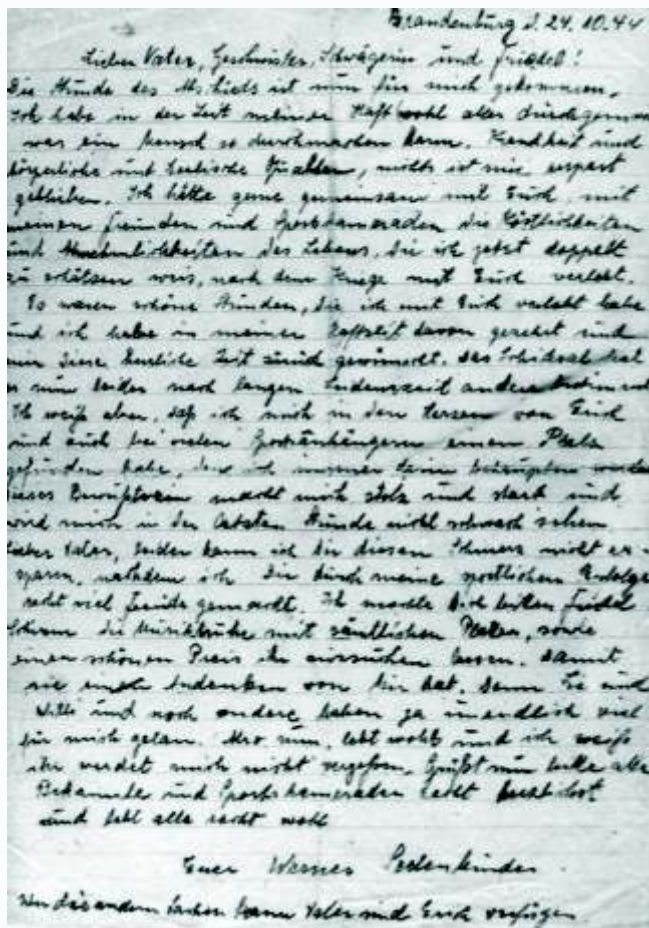 Brandenburg d. 24. 10. 44
Lieber Vater, Geschwister, Schwägerin und Friedel!
Die Stunde des Abschieds ist nun für mich gekommen.
Ich habe in der Zeit meiner Haft wohl alles durchgemacht
was ein Mensch so durchmachen kann. Krankheit und
körperliche und seelische Qualen, nichts ist mir erspart
geblieben. Ich hätte gerne gemeinsam mit Euch, mit
meinen Freunden und Sportkameraden die Köstlichkeiten
und Annehmlichkeiten des Lebens, die ich jetzt doppelt
zu schätzen weis, nach dem Kriege mit Euch verlebt.
Es waren schöne Stunden, die ich mit Euch verlebt habe
und ich habe in meiner Haftzeit davon gezehrt und
mir diese herrliche Zeit zurück gewünscht. Das Schicksal hat
es nun leider nach langer Leidenszeit anders bestimmt
Ich weiß aber, daß ich mich in den Herzen von Euch
und auch bei vielen Sportanhängern einen Platz
gefunden habe, den ich immer darin behaupten werde
Dieses Bewußtsein macht mich stolz und stark und
wird mich in der letzten Stunde nicht schwach sehen
Lieber Vater, leider kann ich dir diesen Schmerz nicht er-
sparen, nachdem ich dir durch meine sportlichen Erfolge
recht viel Freude gemacht. Ich möchte Dich bitten Friedel
die Musiktruhe mit sämtlichen Platten, sowie
einen schönen Preis ihr aussuchen lassen. Damit
sie ein Andenken von mir hat. Denn Sie und
Willi und noch andere haben ja unendlich viel
für mich getan. Also nun, lebt wohl und ich weiß
ihr werdet mich nicht vergessen. Grüßt nun bitte alle
Bekannte und Sportskameraden recht herzlichst
und lebt alle recht wohl
Euer Werner Seelenbinder.
Über die andern Sachen kann Vater und Erich verfügen.